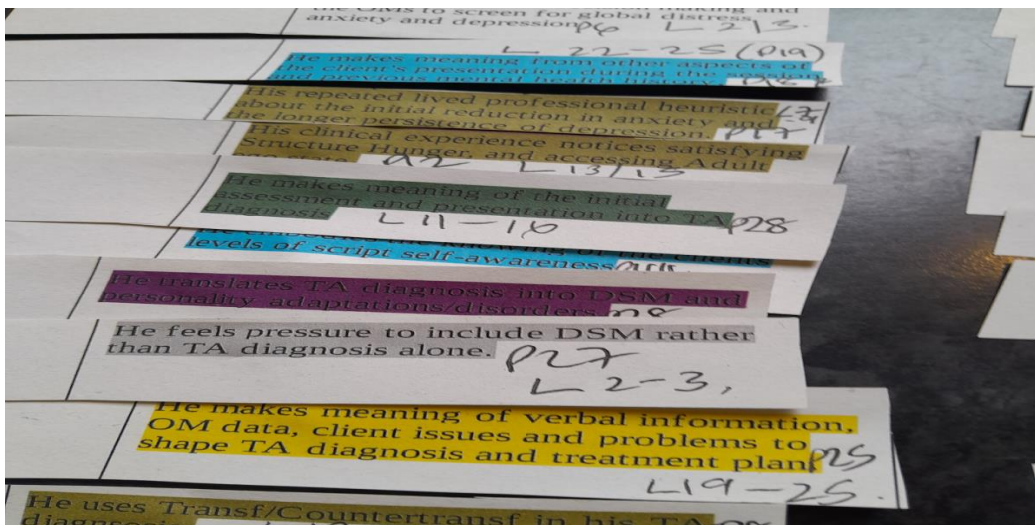 the OMs to screen for global distress,
anxiety and depression P6 L 213.
L 22-25 (P19)
He makes meaning from other aspects of
the client's presentation during the session
and previous mental health history.
His repeated lived professional heuristic
about the initial reduction in anxiety and
the longer persistence of depression. P17
His clinical experience notices satisfying
Structure Hunger, and accessing Adult
L 13/15
He makes meaning of the initial
assessment and presentation into TA
diagnosis P28
L 11-16
levels of script self-awareness
He translates TA diagnosis into DSM and
personality adaptations/disorders.
He feels pressure to include DSM rather
than TA diagnosis alone. P27
L 2-3,
He makes meaning of verbal information,
OM data, client issues and problems to
shape TA diagnosis and treatment plan. P25
L19-25.
He uses Transf/Countertransf in his TA
diagnosis